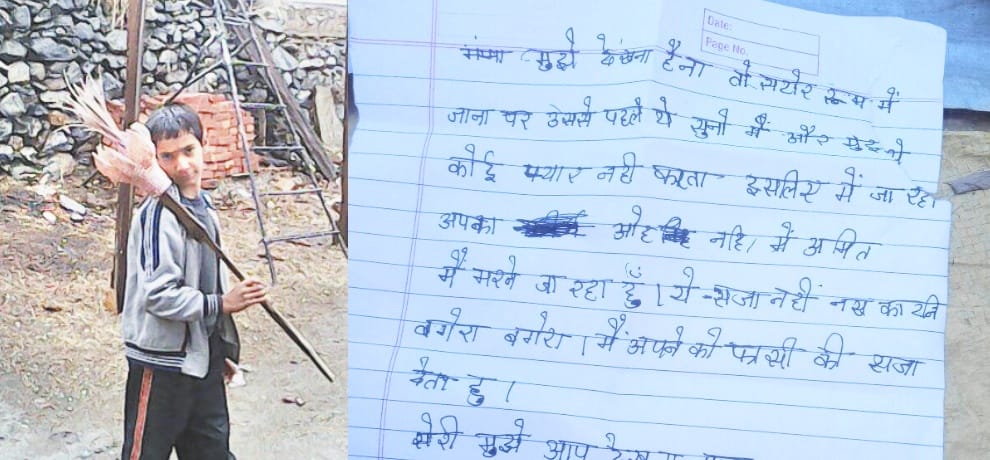 Date:
Page No.
मंम्मा मुझे देखना हैना तो सटोर रूम में
जाना पर उससे पहले ये सुनो मैं और मुझे
कोई प्यार नही करता इसलिए में जा रहा
अपका ओह नहि। में अमित
मैं मरने जा रहा हूँ। ये सजा नहीं
बगेरा बगेरा। मैं अपने को की सजा
देता हु।
सोरी मुझे आप